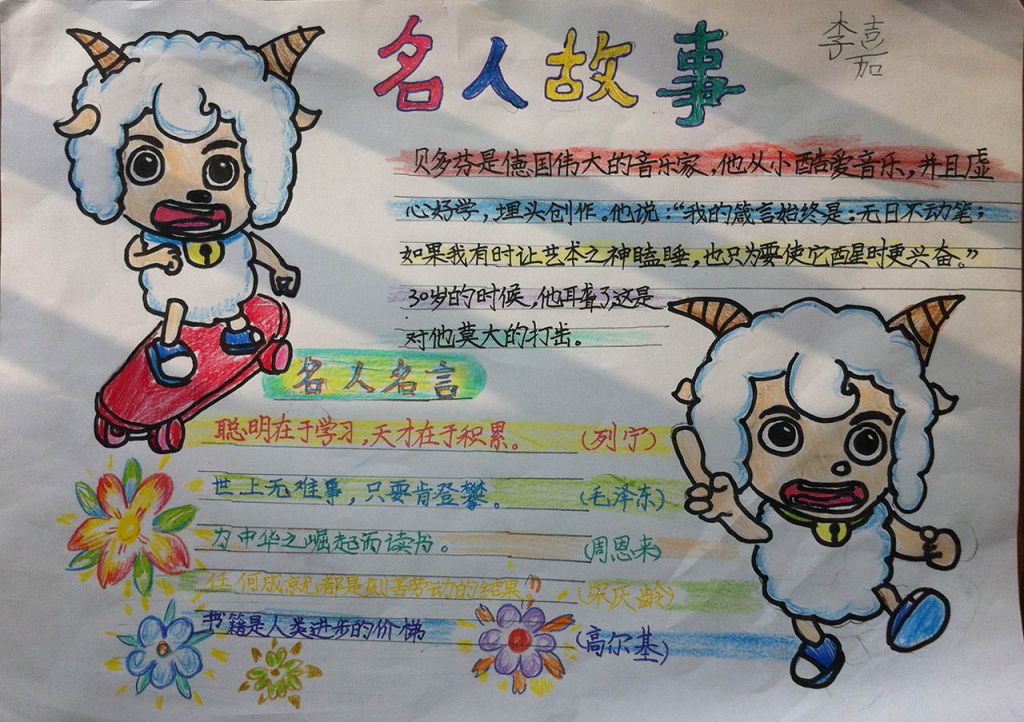 名人故事
李喜茹
贝多芬是德国伟大的音乐家,他从小酷爱音乐,并且虚
心好学,埋头创作。他说:“我的箴言始终是:无日不动笔;
如果我有时让艺术之神瞌睡,也只为要使它醒时更兴奋。”
30岁的时候,他耳聋了这是
对他莫大的打击。
名人名言
聪明在于学习,天才在于积累。 (列宁)
世上无难事,只要肯登攀。 (毛泽东)
为中华之崛起而读书。 (周恩来)
任何成就都是刻苦劳动的结果。” (宋庆龄)
书籍是人类进步的价梯 (高尔基)